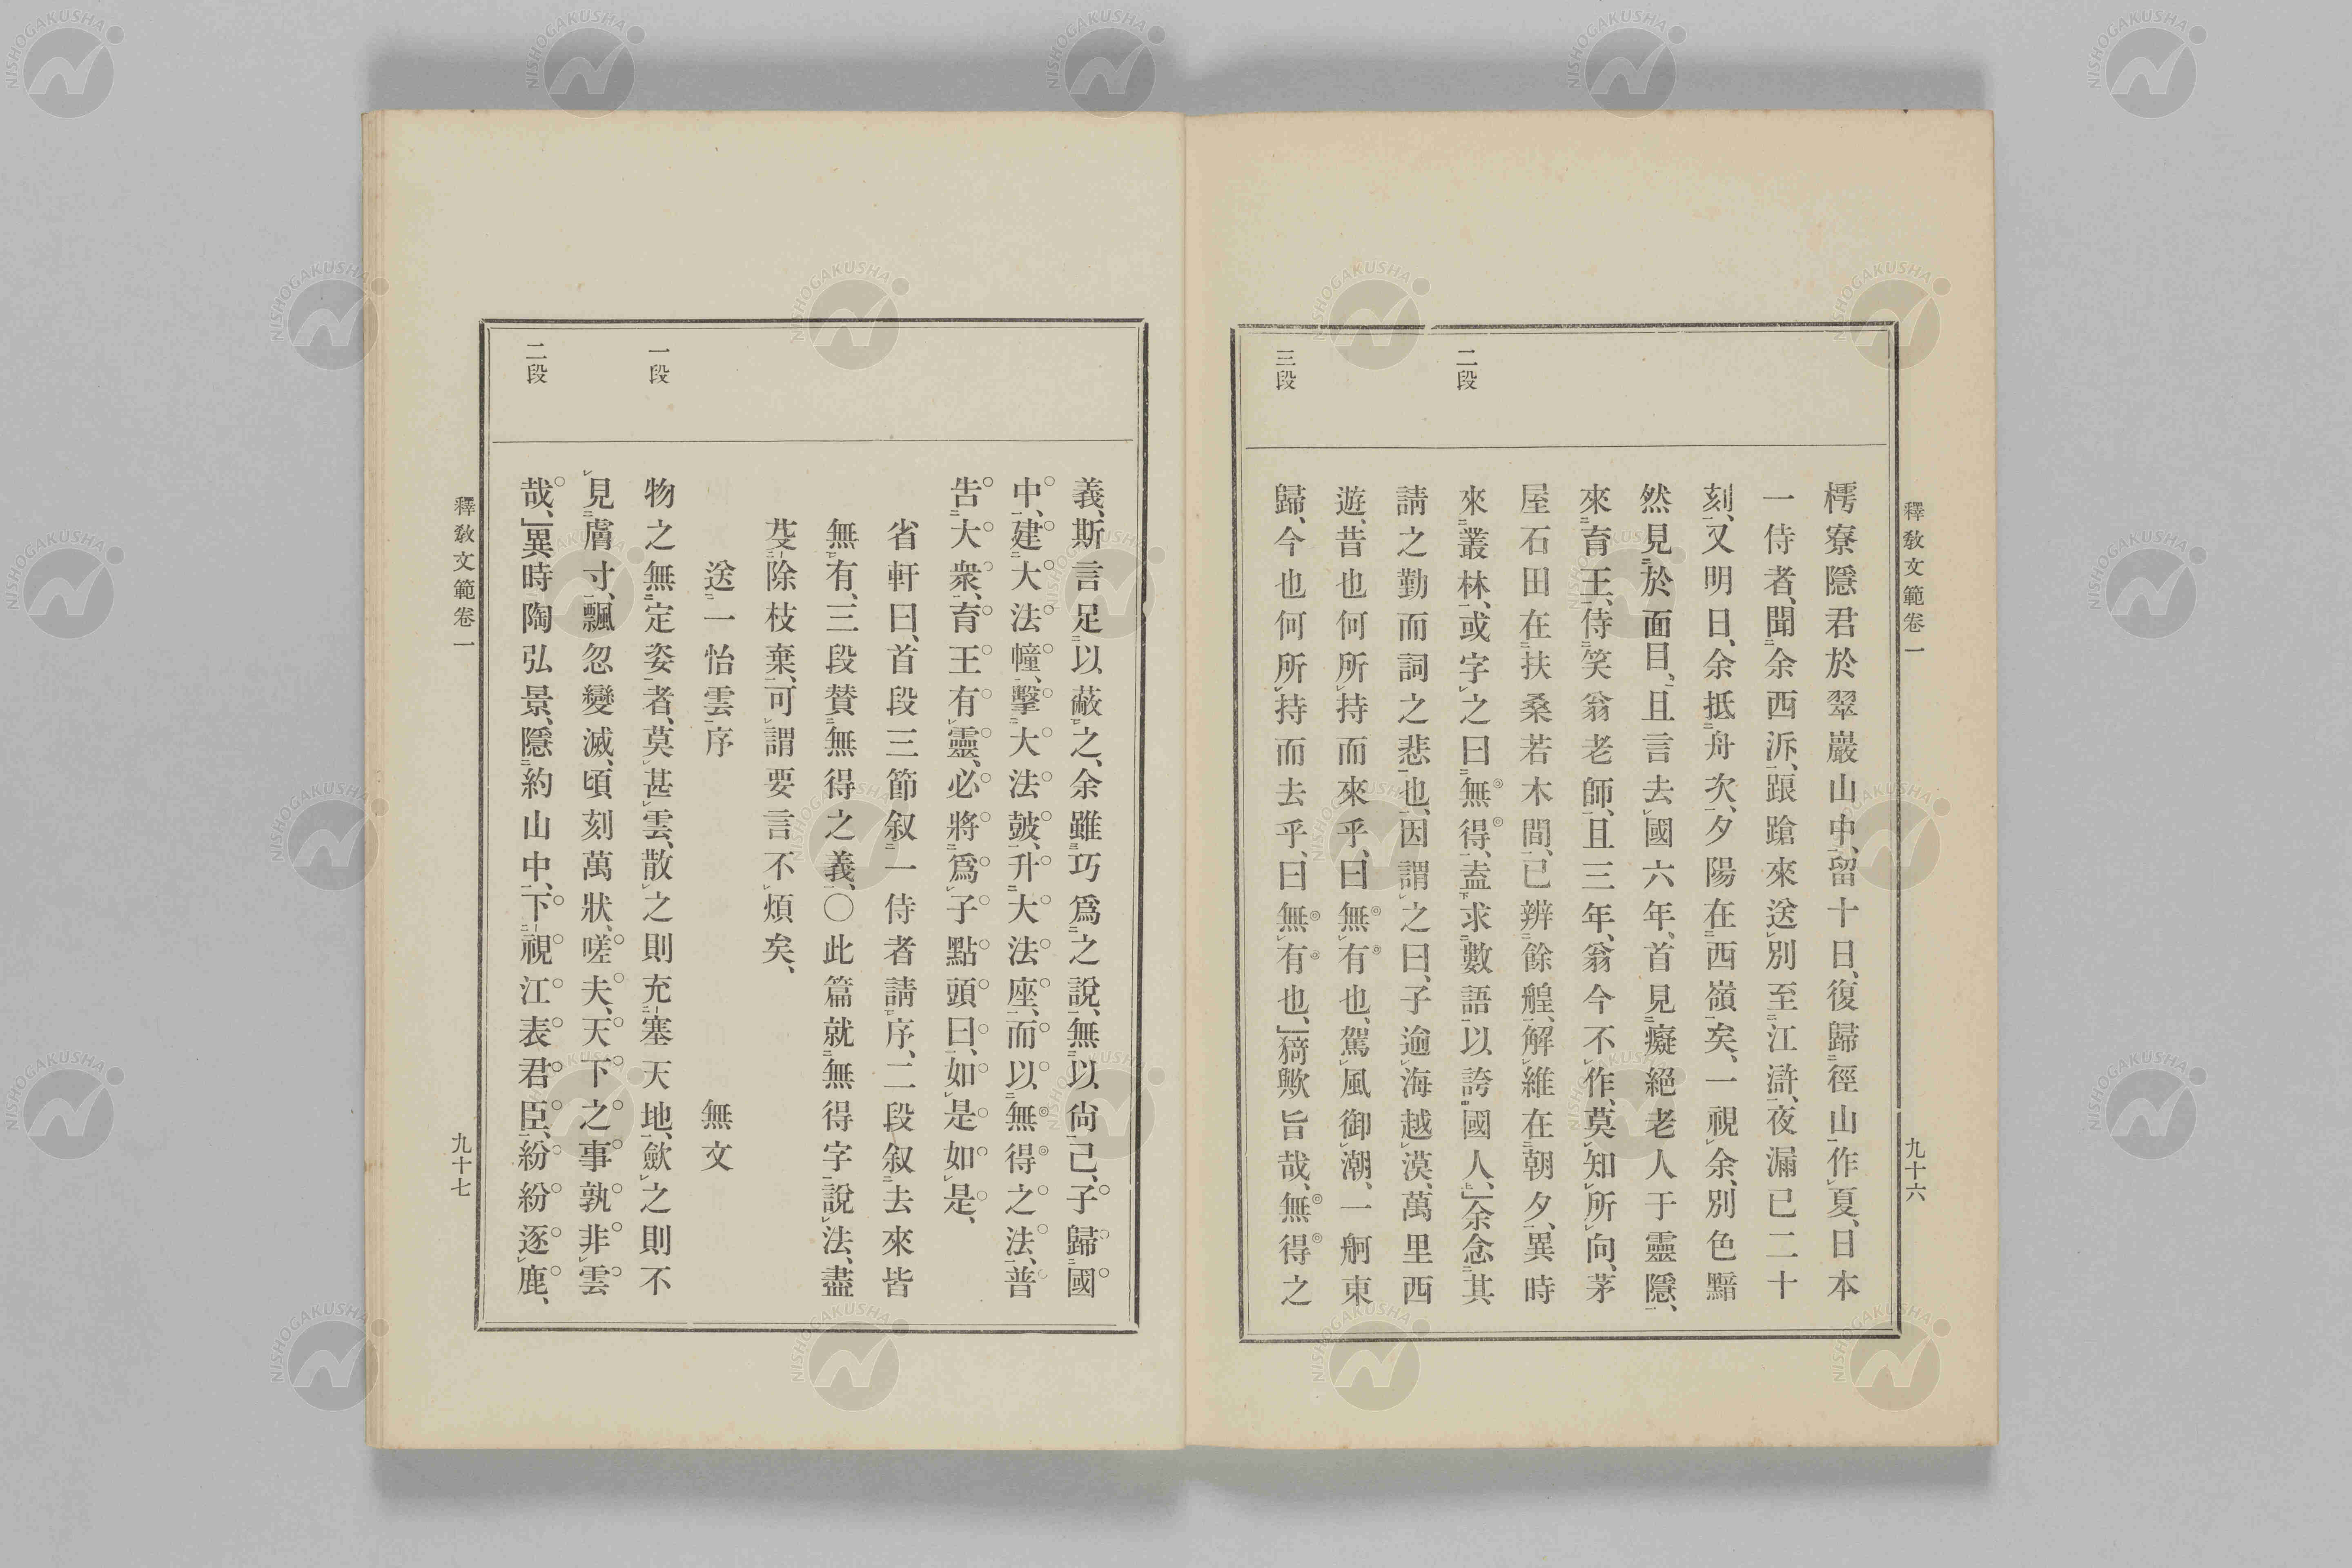 釋敎文範卷一
九十六
二段
三段
樗寮隱君於翠巖山中、留十日、復歸徑山作夏、日本
一侍者、聞余西泝、踉蹌來送別至江滸、夜漏已二十
刻、又明日、余抵舟次、夕陽在西嶺矣、一視余、別色黯
然見於面目、且言去國六年、首見癡絕老人于靈隱、
來育王、侍笑翁老師、且三年、翁今不作、莫知所向、茅
屋石田在扶桑若木間、已辨餘艎、解維在朝夕、異時
來叢林、或字之曰無得、盍求數語以誇國人、」余念其
請之勤而詞之悲也、因謂之曰、子逾海越漠、萬里西
遊、昔也何所持而來乎、曰無有也、駕風御潮、一舸東
歸、今也何所持而去乎、曰無有也、」猗歟旨哉、無得之
義、斯言足以蔽之、余雖巧爲之說、無以尙已、子歸國
中、建大法幢、擊大法皷、升大法座、而以無得之法、普
吿大衆、育王有靈、必將爲子點頭曰、如是如是、
省軒曰、首段三節叙一侍者請序、二段叙去來皆
無有、三段賛無得之義、〇此篇就無得字說法、盡
芟除枝棄、可謂要言不煩矣、
送一怡雲序
無文
一段
二段
物之無定姿者、莫甚雲、散之則充塞天地、歛之則不
見膚寸、飄忽變滅、頃刻萬狀、嗟夫、天下之事孰非雲
哉、」異時陶弘景、隱約山中、下視江表君臣、紛紛逐鹿、
釋敎文範卷一
九十七
NISHOGAKUSHA